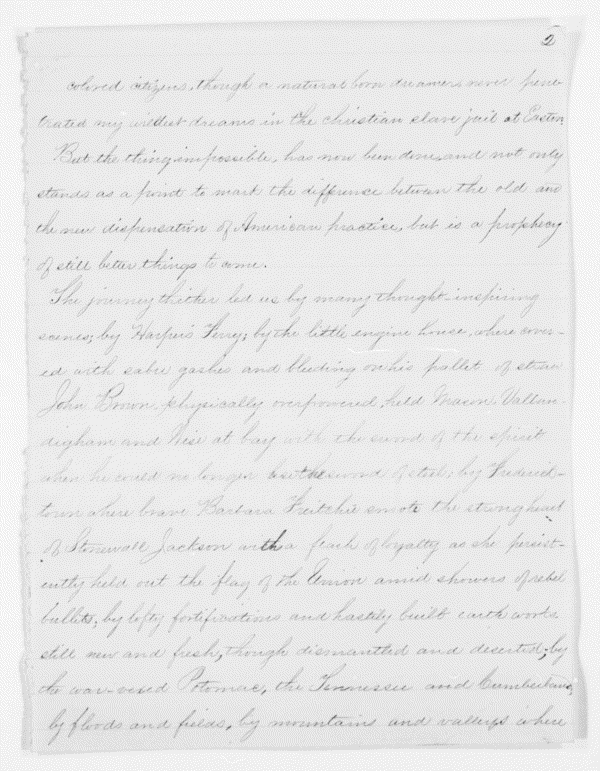 2
colored citizens, though a natural born dreamer, never pene-
trated my wildest dreams in the christian slave jail at Easton.
But the thing impossible, has now been done, and not only
stands as a point to mark the difference between the old and
the new dispensation of American practice, but is a prophecy
of still better things to come.
The journey thither led us by many thought-inspiring
scenes; by Harpers Ferry; by the little engine house, where cover-
ed with sabre gashes and bleeding on his pallet of straw
John Brown, physically overpowered, held Mason Vallan-
digham and Wise at bay with the sword of the spirit
when he could no longer use the sword of steel; by Frederick-
town where brave Barbara Freitchie smote the strong heart
of Stonewall Jackson with a flash of loyalty as she persist-
ently held out the flag of the Union amid showers of rebel
bullets; by lofty fortifications and hastily built earth works
still new and fresh, though dismantled and deserted; by
the war-vexed Potomac, the Tennessee and Cumberland,
by floods and fields, by mountains and valleys where